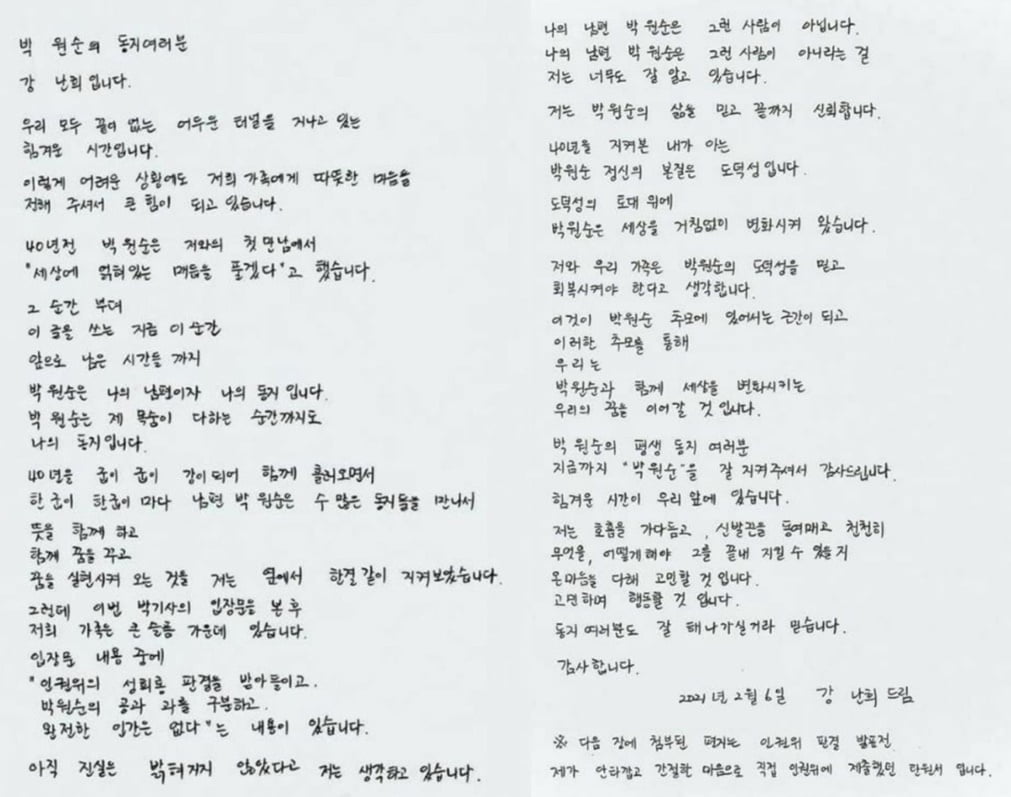 박 원순의 동지여러분
강 난희 입니다.
우리 모두 끝이 없는 어두운 터널을 지나고 있는
힘겨운 시간입니다.
이렇게 어려운 상황에도 저희 가족에게 따뜻한 마음을
전해 주셔서 큰 힘이 되고 있습니다.
40년전 박 원순은 저와의 첫 만남에서
"세상에 얽혀있는 매듭을 풀겠다"고 했습니다.
그 순간 부터
이 글을 쓰는 지금 이 순간
앞으로 남은 시간들 까지
박 원순은 나의 남편이자 나의 동지 입니다.
박 원순은 제 목숨이 다하는 순간까지도
나의 동지입니다.
40년을 굽이 굽이 강이 되어 함께 흘러오면서
한 굽이 한굽이 마다 남편 박 원순은 수 많은 동지들을 만나서
뜻을 함께 하고
함께 꿈을 꾸고
꿈을 실현시켜 오는 것을 저는 옆에서 한결같이 지켜보았습니다.
그런데 이번 박기사의 입장문을 본 후
저희 가족은 큰 슬픔 가운데 있습니다.
입장문 내용 중에
"인권위의 성희롱 판결을 받아들이고.
박원순의 공과 과를 구분하고.
완전한 인간은 없다"는 내용이 있습니다.
아직 진실은 밝혀지지 않았다고 저는 생각하고 있습니다.
나의 남편 박 원순은 그런 사람이 아닙니다.
나의 남편 박 원순은 그런 사람이 아니라는 걸
저는 너무도 잘 알고 있습니다.
저는 박원순의 삶을 믿고 끝까지 신뢰합니다.
40년을 지켜본 내가 아는
박원순 정신의 본질은 도덕성입니다.
도덕성의 토대 위에
박원순은 세상을 거침없이 변화시켜 왔습니다.
저와 우리 가족은 박원순의 도덕성을 믿고
회복시켜야 한다고 생각합니다.
이것이 박원순 추모에 있어서는 근간이 되고
이러한 추모를 통해
우리는
박원순과 함께 세상을 변화시키는
우리의 꿈을 이어갈 것 입니다.
박 원순의 평생 동지 여러분
지금까지 "박원순"을 잘 지켜주셔서 감사드립니다.
힘겨운 시간이 우리 앞에 있습니다.
저는 호흡을 가다듬고, 신발끈을 동여매고 천천히
무엇을, 어떻게 해야 그를 끝내 지킬 수 있을 지
온마음을 다해 고민할 것 입니다.
고민하며 행동할 것 입니다.
동지 여러분도 잘 해 나가실거라 믿습니다.
감사합니다.
2021년 2월 6일 강 난희 드림
※ 다음 장에 첨부된 편지는 인권위 판결 발표전
제가 안타깝고 간절한 마음으로 직접 인권위에 제출했던 탄원서 입니다.